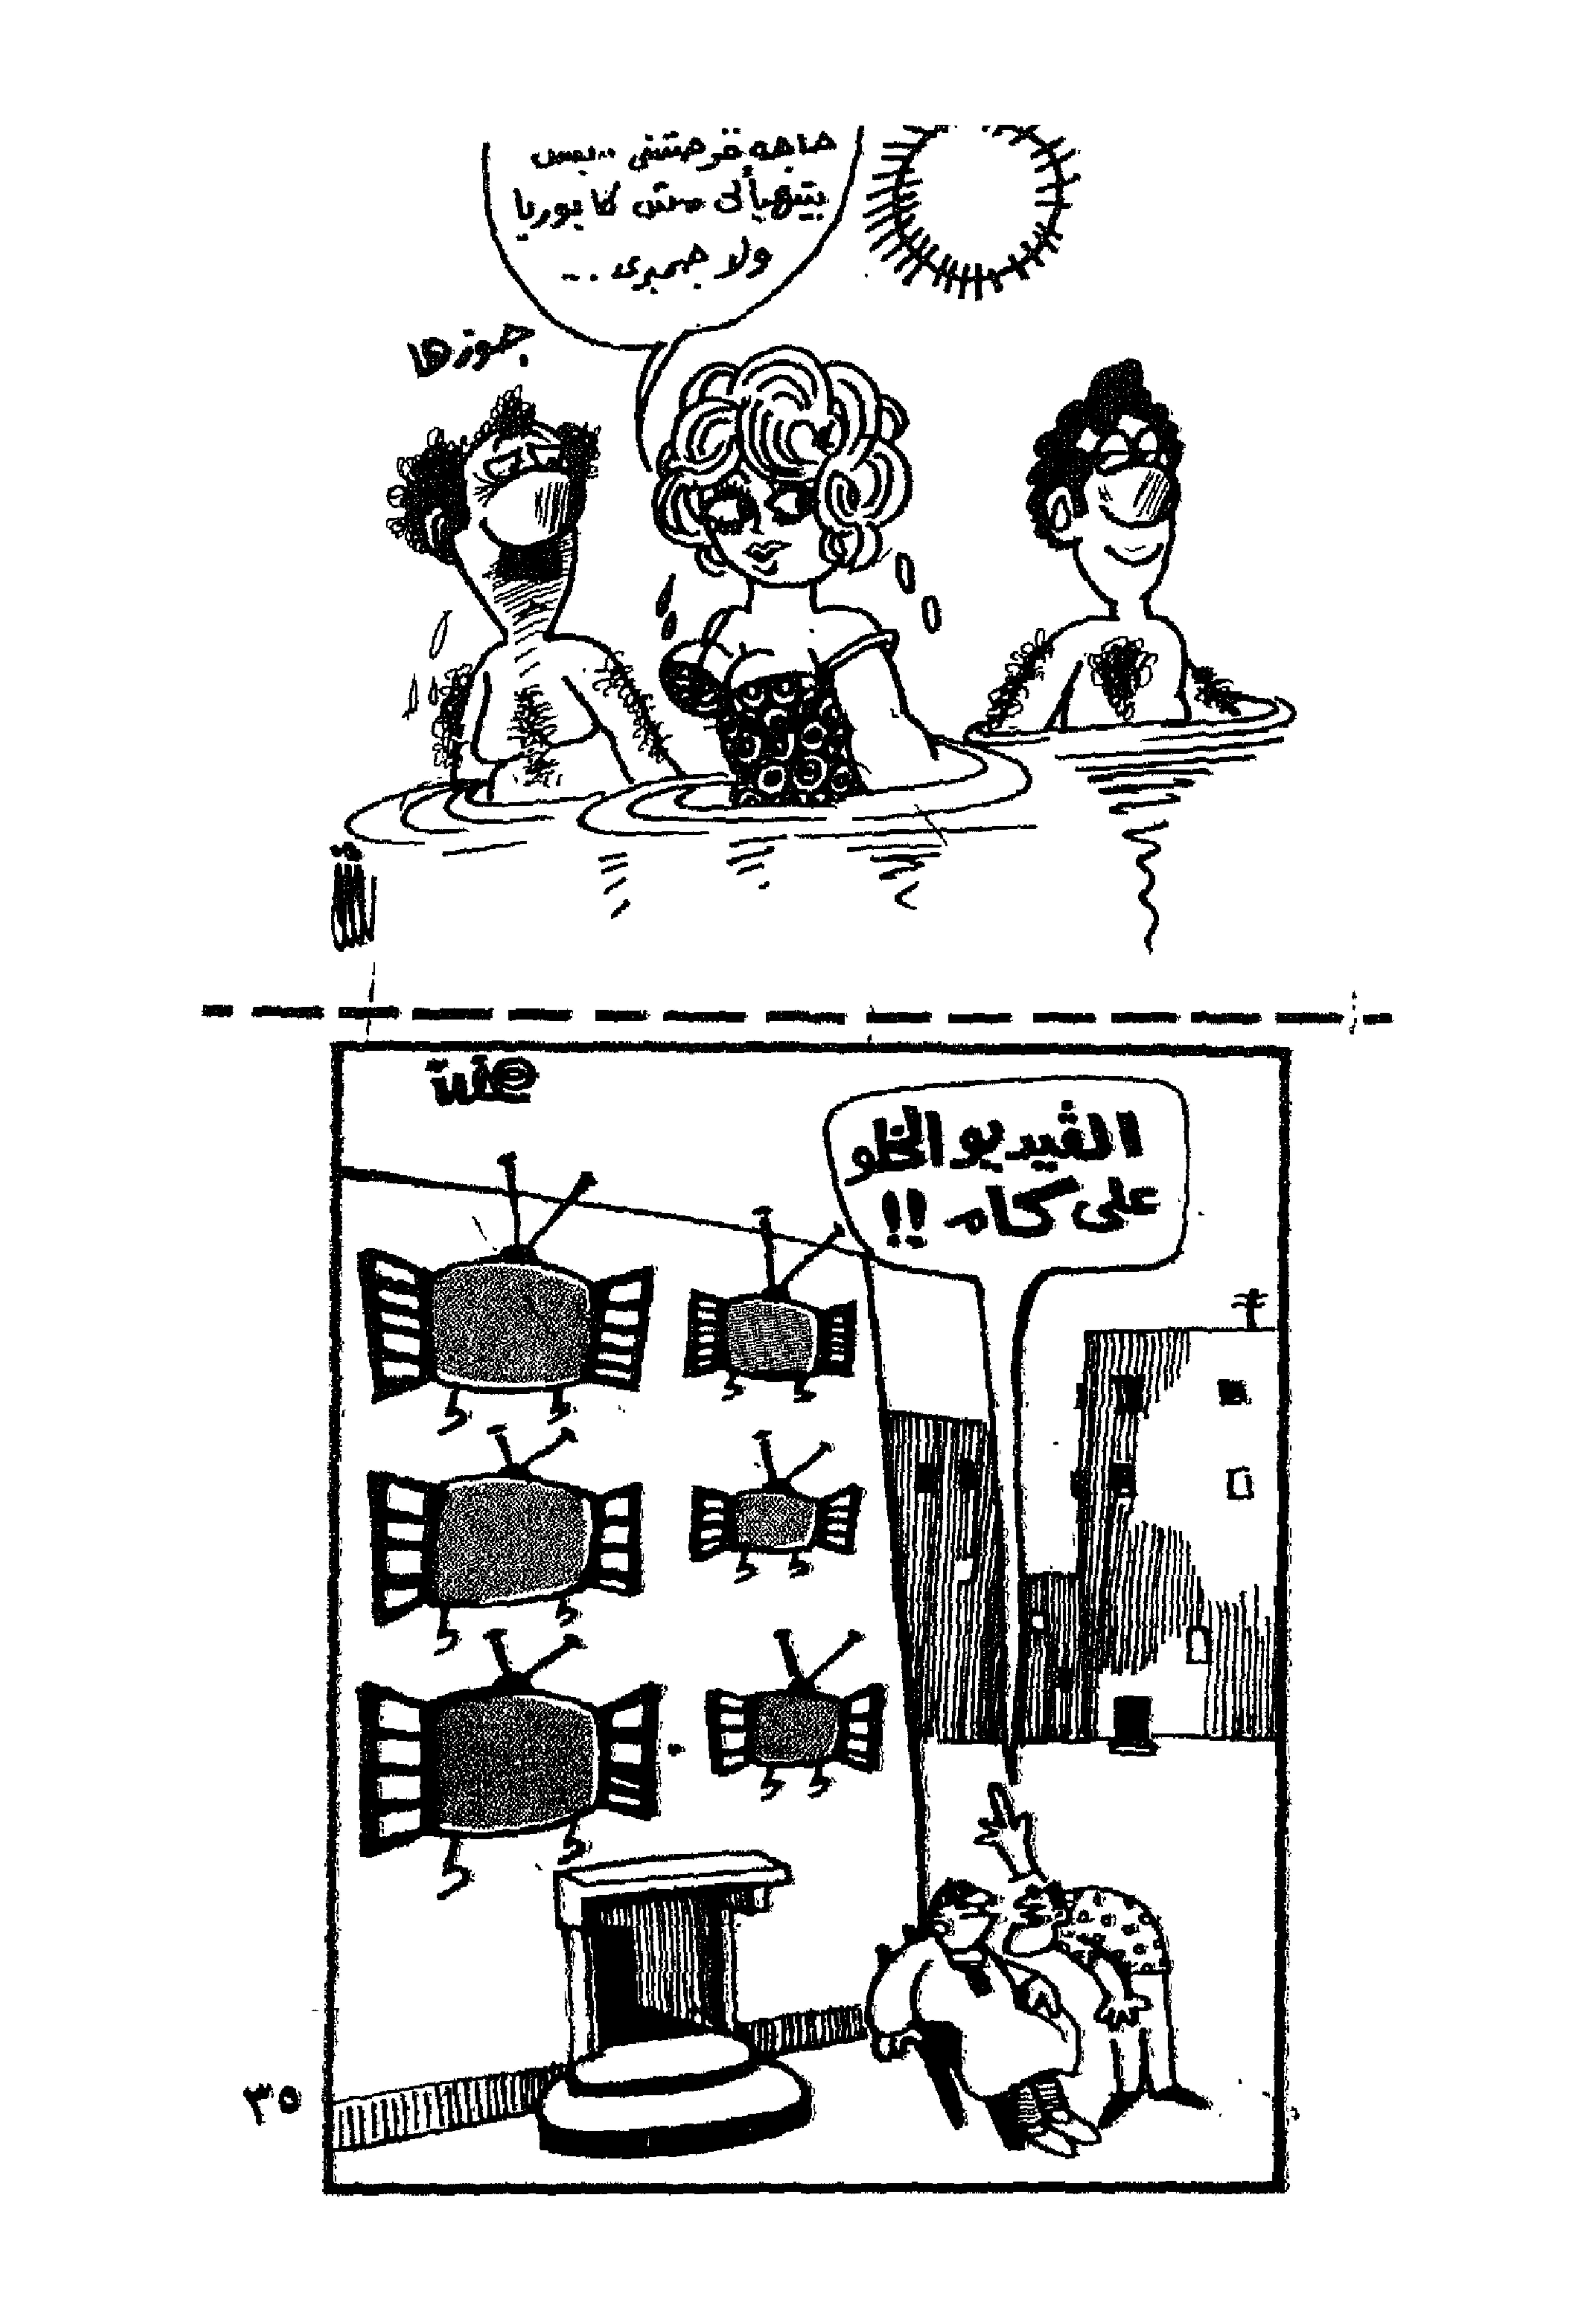 حاجه قرصتني .. بس
بيتهيألى مش كابوريا
ولا جمبرى ...
جوزها
الڤيديو الخلو
على كام !!
٣٥